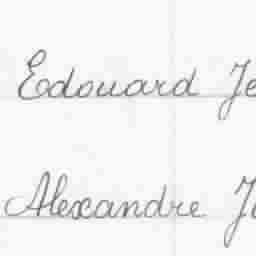 Edouard Je
Alexandre J